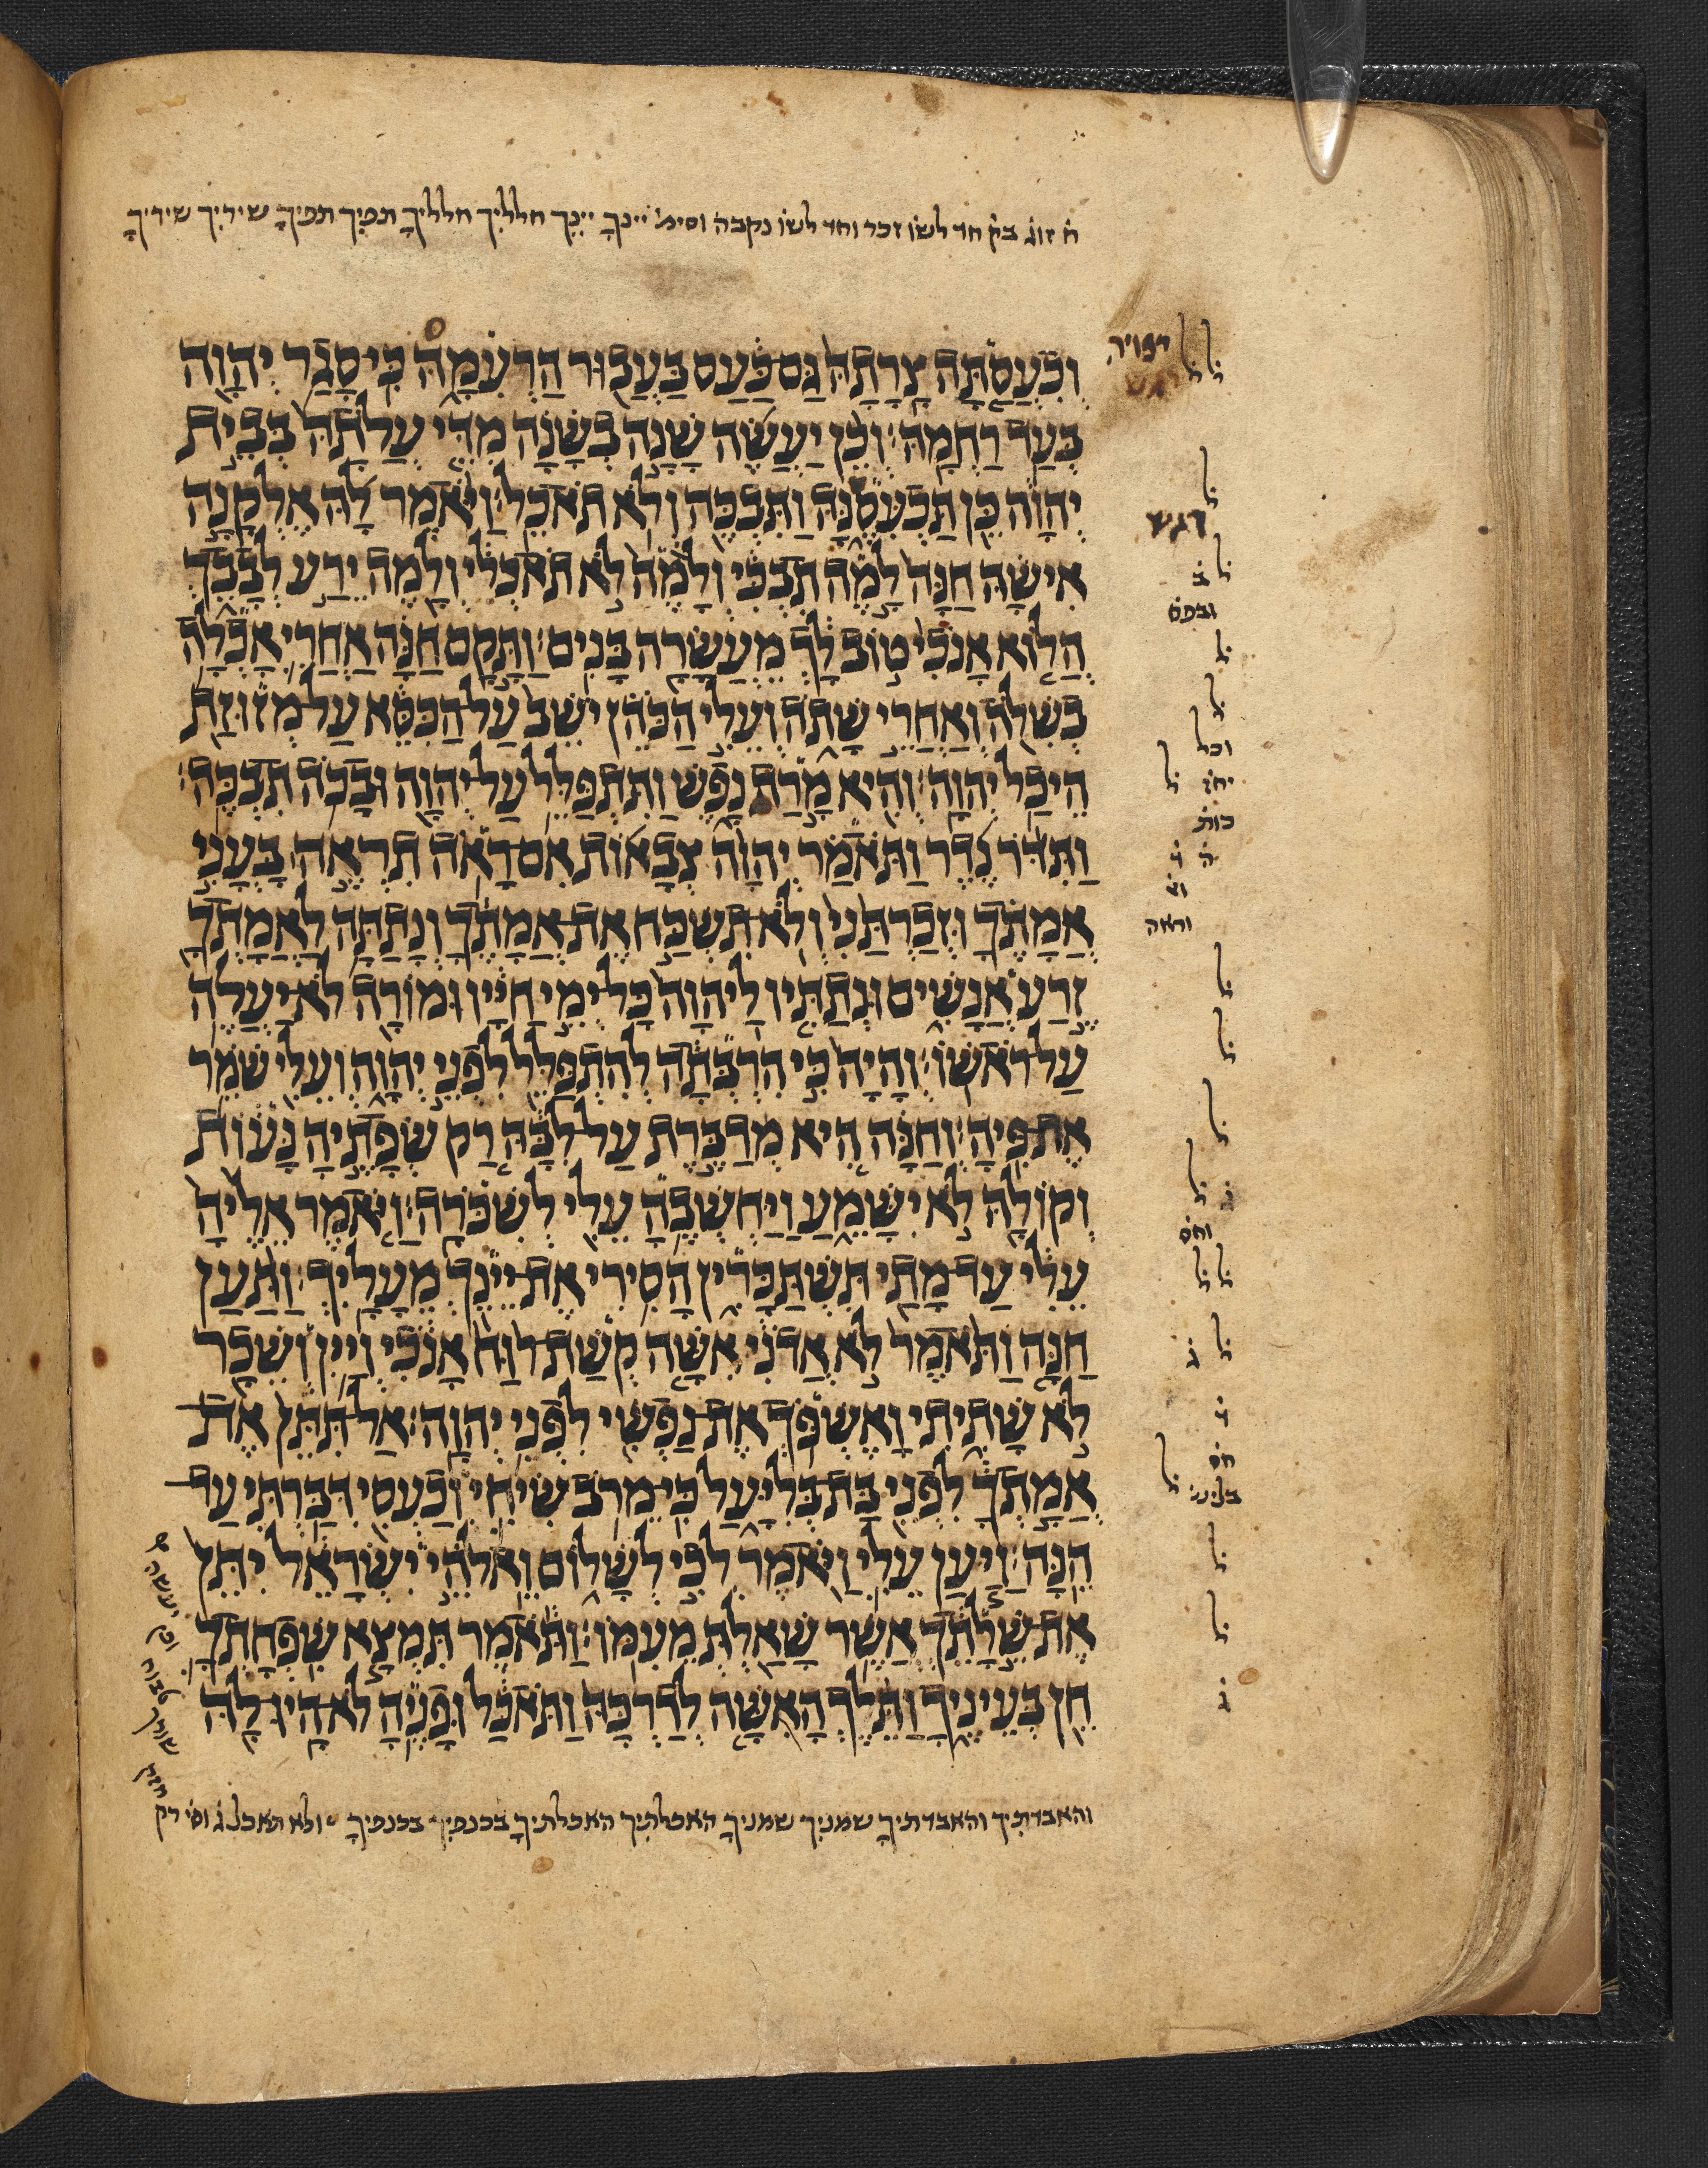 ח̇ זוג̇ בק̇ חד לשו̇ זכר וחד לשו̇ נקבה וסימ̇ יינךָ יינֵך חלליִך חלליךָ תפיִך תפיךָ שיריִך שיריךָ
וְכִעֲסַתָּה צָרָתָהּ גַּם כַּעַס בַּעֲבוּר הַרְּעִמָהּ כִּי סָגַר יְהוָה
בְּעַד רַחְמָהּ׃ וְכֵן יַעֲשֶׂה שָׁנָה בְשָׁנָה מִדֵּי עֲלֹתָהּ בְּבֵית
יְהוָה כֵּן תַּכְעִסֶנָּה וַתִּבְכֶּה וְלֹא תֹאכַל׃ וַיֹּאמֶר לָהּ אֶלְקָנָה
אִישָׁהּ חַנָּה לָמֶה תִבְכִּי וְלָמֶה לֹא תֹאכְלִי וְלָמֶה יֵרַע לְבָבֵךְ
הֲלוֹא אָנֹכִי טוֹב לָךְ מֵעֲשָׂרָה בָּנִים׃ וַתָּקָם חַנָּה אַחֲרֵי אָכְלָה
בְשִׁלֹה וְאַחֲרֵי שָׁתֹה וְעֵלִי הַכֹּהֵן יֹשֵׁב עַל הַכִּסֵּא עַל מְזוּזַת
הֵיכַל יְהוָה׃ וְהִיא מָרַת נָפֶשׁ וַתִּתְפַּלֵּל עַל יְהוָה וּבָכֹה תִבְכֶּה׃
וַתִּדֹּר נֶדֶר וַתֹּאמַר יְהוָה צְבָאוֹת אִם רָאֹה תִרְאֶה בָּעֳנִי
אֲמָתֶךָ וּזְכַרְתַּנִי וְלֹא תִשְׁכַּח אֶת אֲמָתֶךָ וְנָתַתָּה לַאֲמָתְךָ
זֶרַע אֲנָשִׁים וּנְתַתִּיו לַיהוָה כָּל יְמֵי חַיָּיו וּמוֹרָה לֹא יַעֲלֶה
עַל רֹאשׁוֹ׃ וְהָיָה כִּי הִרְבְּתָה לְהִתְפַּלֵּל לִפְנֵי יְהוָה וְעֵלִי שֹׁמֵר
אֶת פִּיהָ׃ וְחַנָּה הִיא מְדַבֶּרֶת עַל לִבָּהּ רַק שְׂפָתֶיהָ נָּעוֹת
וְקוֹלָהּ לֹא יִשָּׁמֵעַ וַיַּחְשְׁבֶהָ עֵלִי לְשִׁכֹּרָה׃ וַיֹּאמֶר אֵלֶיהָ
עֵלִי עַד מָתַי תִּשְׁתַּכָּרִין הָסִירִי אֶת יֵינֵךְ מֵעָלָיִךְ׃ וַתַּעַן
חַנָּה וַתֹּאמֶר לֹא אֲדֹנִי אִשָּׁה קְשַׁת רוּחַ אָנֹכִי וְיַיִן וְשֵׁכָר
לֹא שָׁתִיתִי וָאֶשְׁפֹּךְ אֶת נַפְשִׁי לִפְנֵי יְהוָה׃ אַל תִּתֵּן אֶת
אֲמָתְךָ לִפְנֵי בַּת בְּלִיָּעַל כִּי מֵרֹב שִׂיחִי וְכַעְסִי דִּבַּרְתִּי עַד
הֵנָּה׃ וַיַּעַן עֵלִי וַיֹּאמֶר לְכִי לְשָׁלוֹם וֵאלֹהֵי יִשְׂרָאֵל יִתֵּן
אֶת שֵׁלָתֵךְ אֲשֶׁר שָׁאַלְתְּ מֵעִמּוֹ׃ וַתֹּאמֶר תִּמְצָא שִׁפְחָתְךָ
חֵן בְּעֵינֶיךָ וַתֵּלֶךְ הָאִשָּׁה לְדַרְכָּהּ וַתֹּאכַל וּפָנֶיהָ לֹא הָיוּ לָהּ
והאבדתיִך והאבדתיךָ שמניִך שמניךָ האכלתיִך האכלתיךָ בכנפיִך בכנפיךָ ׃ ולא תאכל ג̇ וסי̇ רק
דגש
ל
ב̇
ובפס̇
ל
ל
וכל
כות̇
וראה
ל
ל
ל
ל
ג̇
וחס̇
ל ל
ל ג̇
חס̇
ל
ל
ג̇